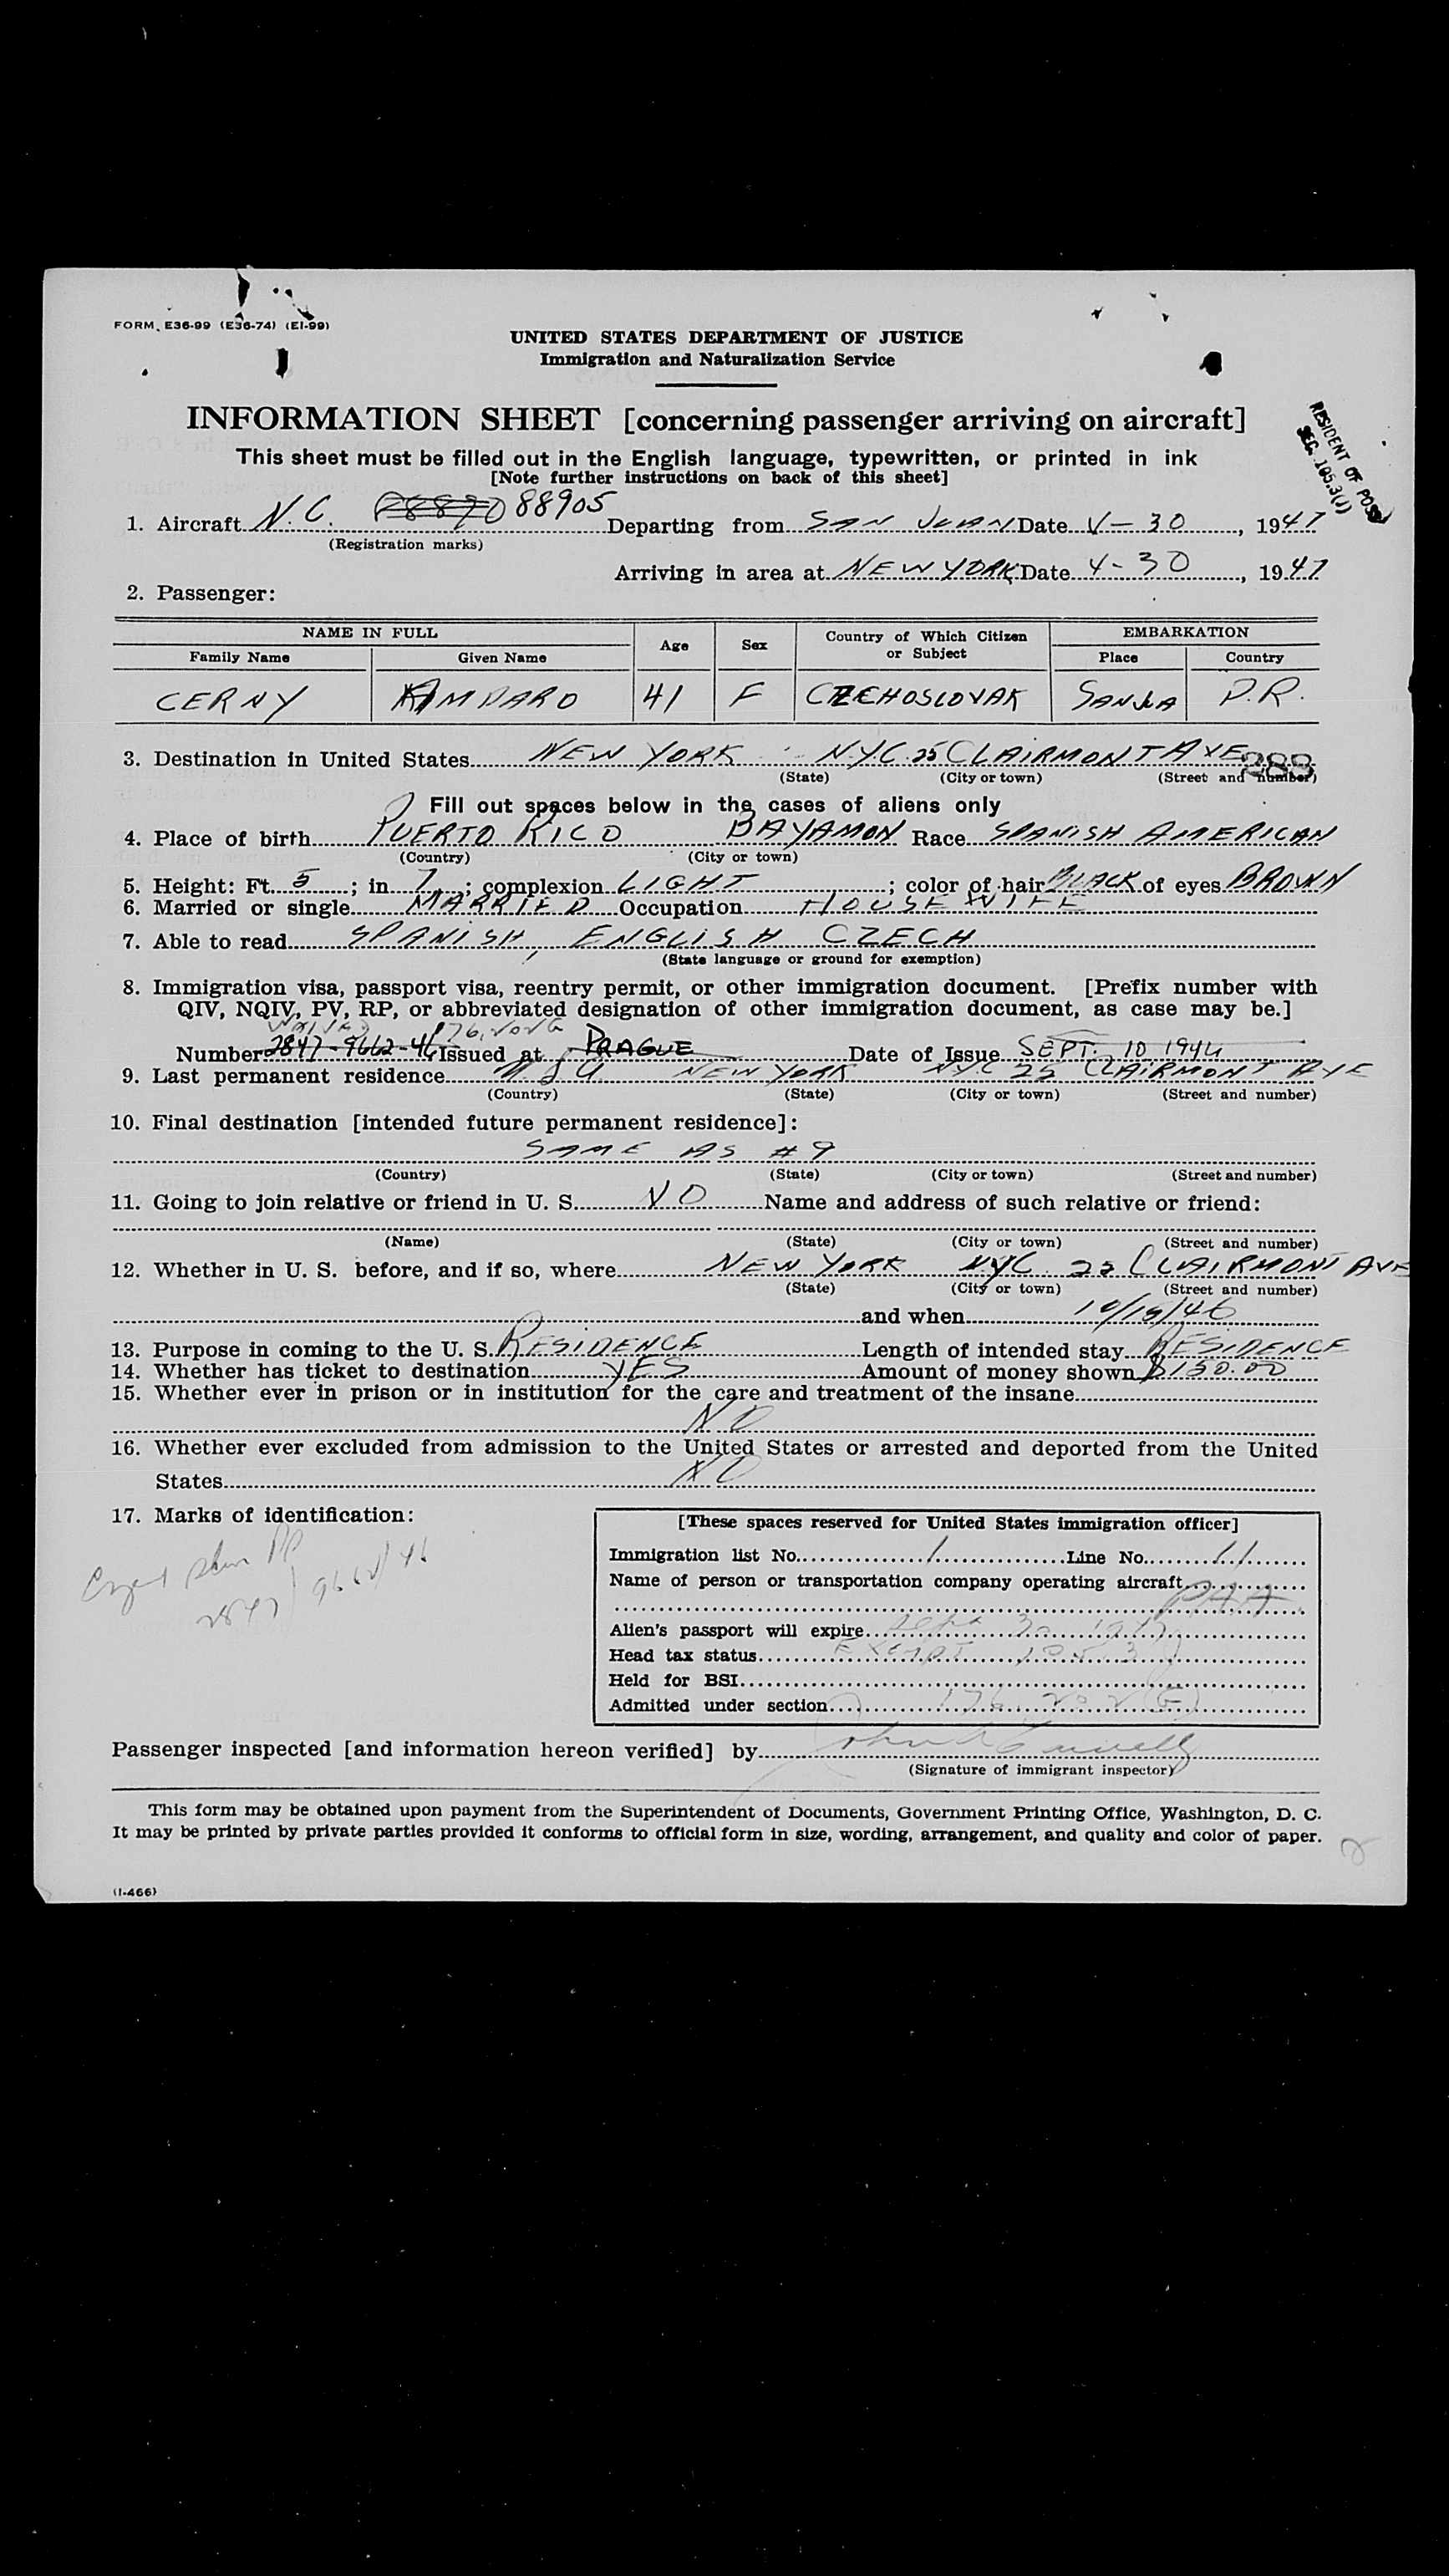 FORM E36-99 (E36-74) (EI-99)
UNITED STATES DEPARTMENT OF JUSTICE
Immigration and Naturalization Service
INFORMATION SHEET [concerning passenger arriving on aircraft]
RESIDENT OF POSS
SEC. 105.3(J)
This sheet must be filled out in the English language, typewritten, or printed in ink
[Note further instructions on back of this sheet]
1. Aircraft N.C. 88905 Departing from SAN JUAN Date 4-30, 1947
(Registration marks)
Arriving in area at NEW YORK Date 4-30, 1947
2. Passenger:
NAME IN FULL Age Sex Country of Which Citizen or Subject EMBARKATION
Family Name Given Name Place Country
CERNY 41 F CZECHOSLOVAK SANJUA P.R.
3. Destination in United States NEW YORK N.Y.C. 25 CLAIRMONT AVE
(State) (City or town) (Street and number)
288
Fill out spaces below in the cases of aliens only
4. Place of birth PUERTO RICO BAYAMON Race SPANISH AMERICAN
(Country) (City or town)
5. Height: Ft. 5; in 7; complexion LIGHT; color of hair BLACK of eyes BROWN
6. Married or single MARRIED Occupation HOUSEWIFE
7. Able to read SPANISH, ENGLISH CZECH
(State language or ground for exemption)
8. Immigration visa, passport visa, reentry permit, or other immigration document. [Prefix number with
QIV, NQIV, PV, RP, or abbreviated designation of other immigration document, as case may be.]
Waived 176.202G
Number 2847-9662-46 Issued at PRAGUE Date of Issue SEPT. 10 1946
9. Last permanent residence USA NEW YORK NYC 25 CLAIRMONT AVE
(Country) (State) (City or town) (Street and number)
10. Final destination [intended future permanent residence]:
SAME AS #9
(Country) (State) (City or town) (Street and number)
11. Going to join relative or friend in U. S. NO Name and address of such relative or friend:
(Name) (State) (City or town) (Street and number)
12. Whether in U. S. before, and if so, where NEW YORK NYC 25 CLAIRMONT AVE
(State) (City or town) (Street and number)
and when 10/15/46
13. Purpose in coming to the U. S. RESIDENCE Length of intended stay RESIDENCE
14. Whether has ticket to destination YES Amount of money shown $150.00
15. Whether ever in prison or in institution for the care and treatment of the insane
NO
16. Whether ever excluded from admission to the United States or arrested and deported from the United
States NO
17. Marks of identification:
PP
2847/9662/46
[These spaces reserved for United States immigration officer]
Immigration list No. 1 Line No. 11
Name of person or transportation company operating aircraft
PAA
Alien's passport will expire Sept 30 1947
Head tax status Exempt 105.3 J
Held for BSI
Admitted under section 176.202(G)
Passenger inspected [and information hereon verified] by John
(Signature of immigrant inspector)
This form may be obtained upon payment from the Superintendent of Documents, Government Printing Office, Washington, D. C.
It may be printed by private parties provided it conforms to official form in size, wording, arrangement, and quality and color of paper.
(I-466)